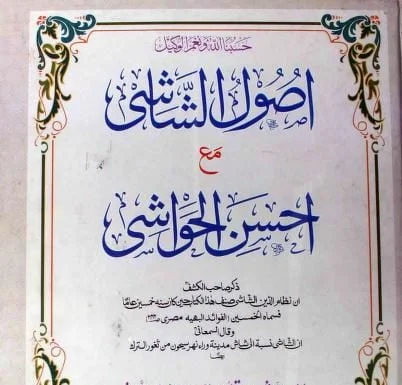 حسبنا الله ونعم الوكيل
اصول الشاشی
مع
احسن الحواشی
ذكر صاحب الكشف
ان نظام الدين الشاشی صنف هذا الكتاب حين كان سنه خمسين عامًا
فسماه الخمسين (الفوائد البهيه مصری
وقال السمعانی
ان الشاشی نسبة الی شاش مدينة وراء نهر سيحون من ثغور الترك